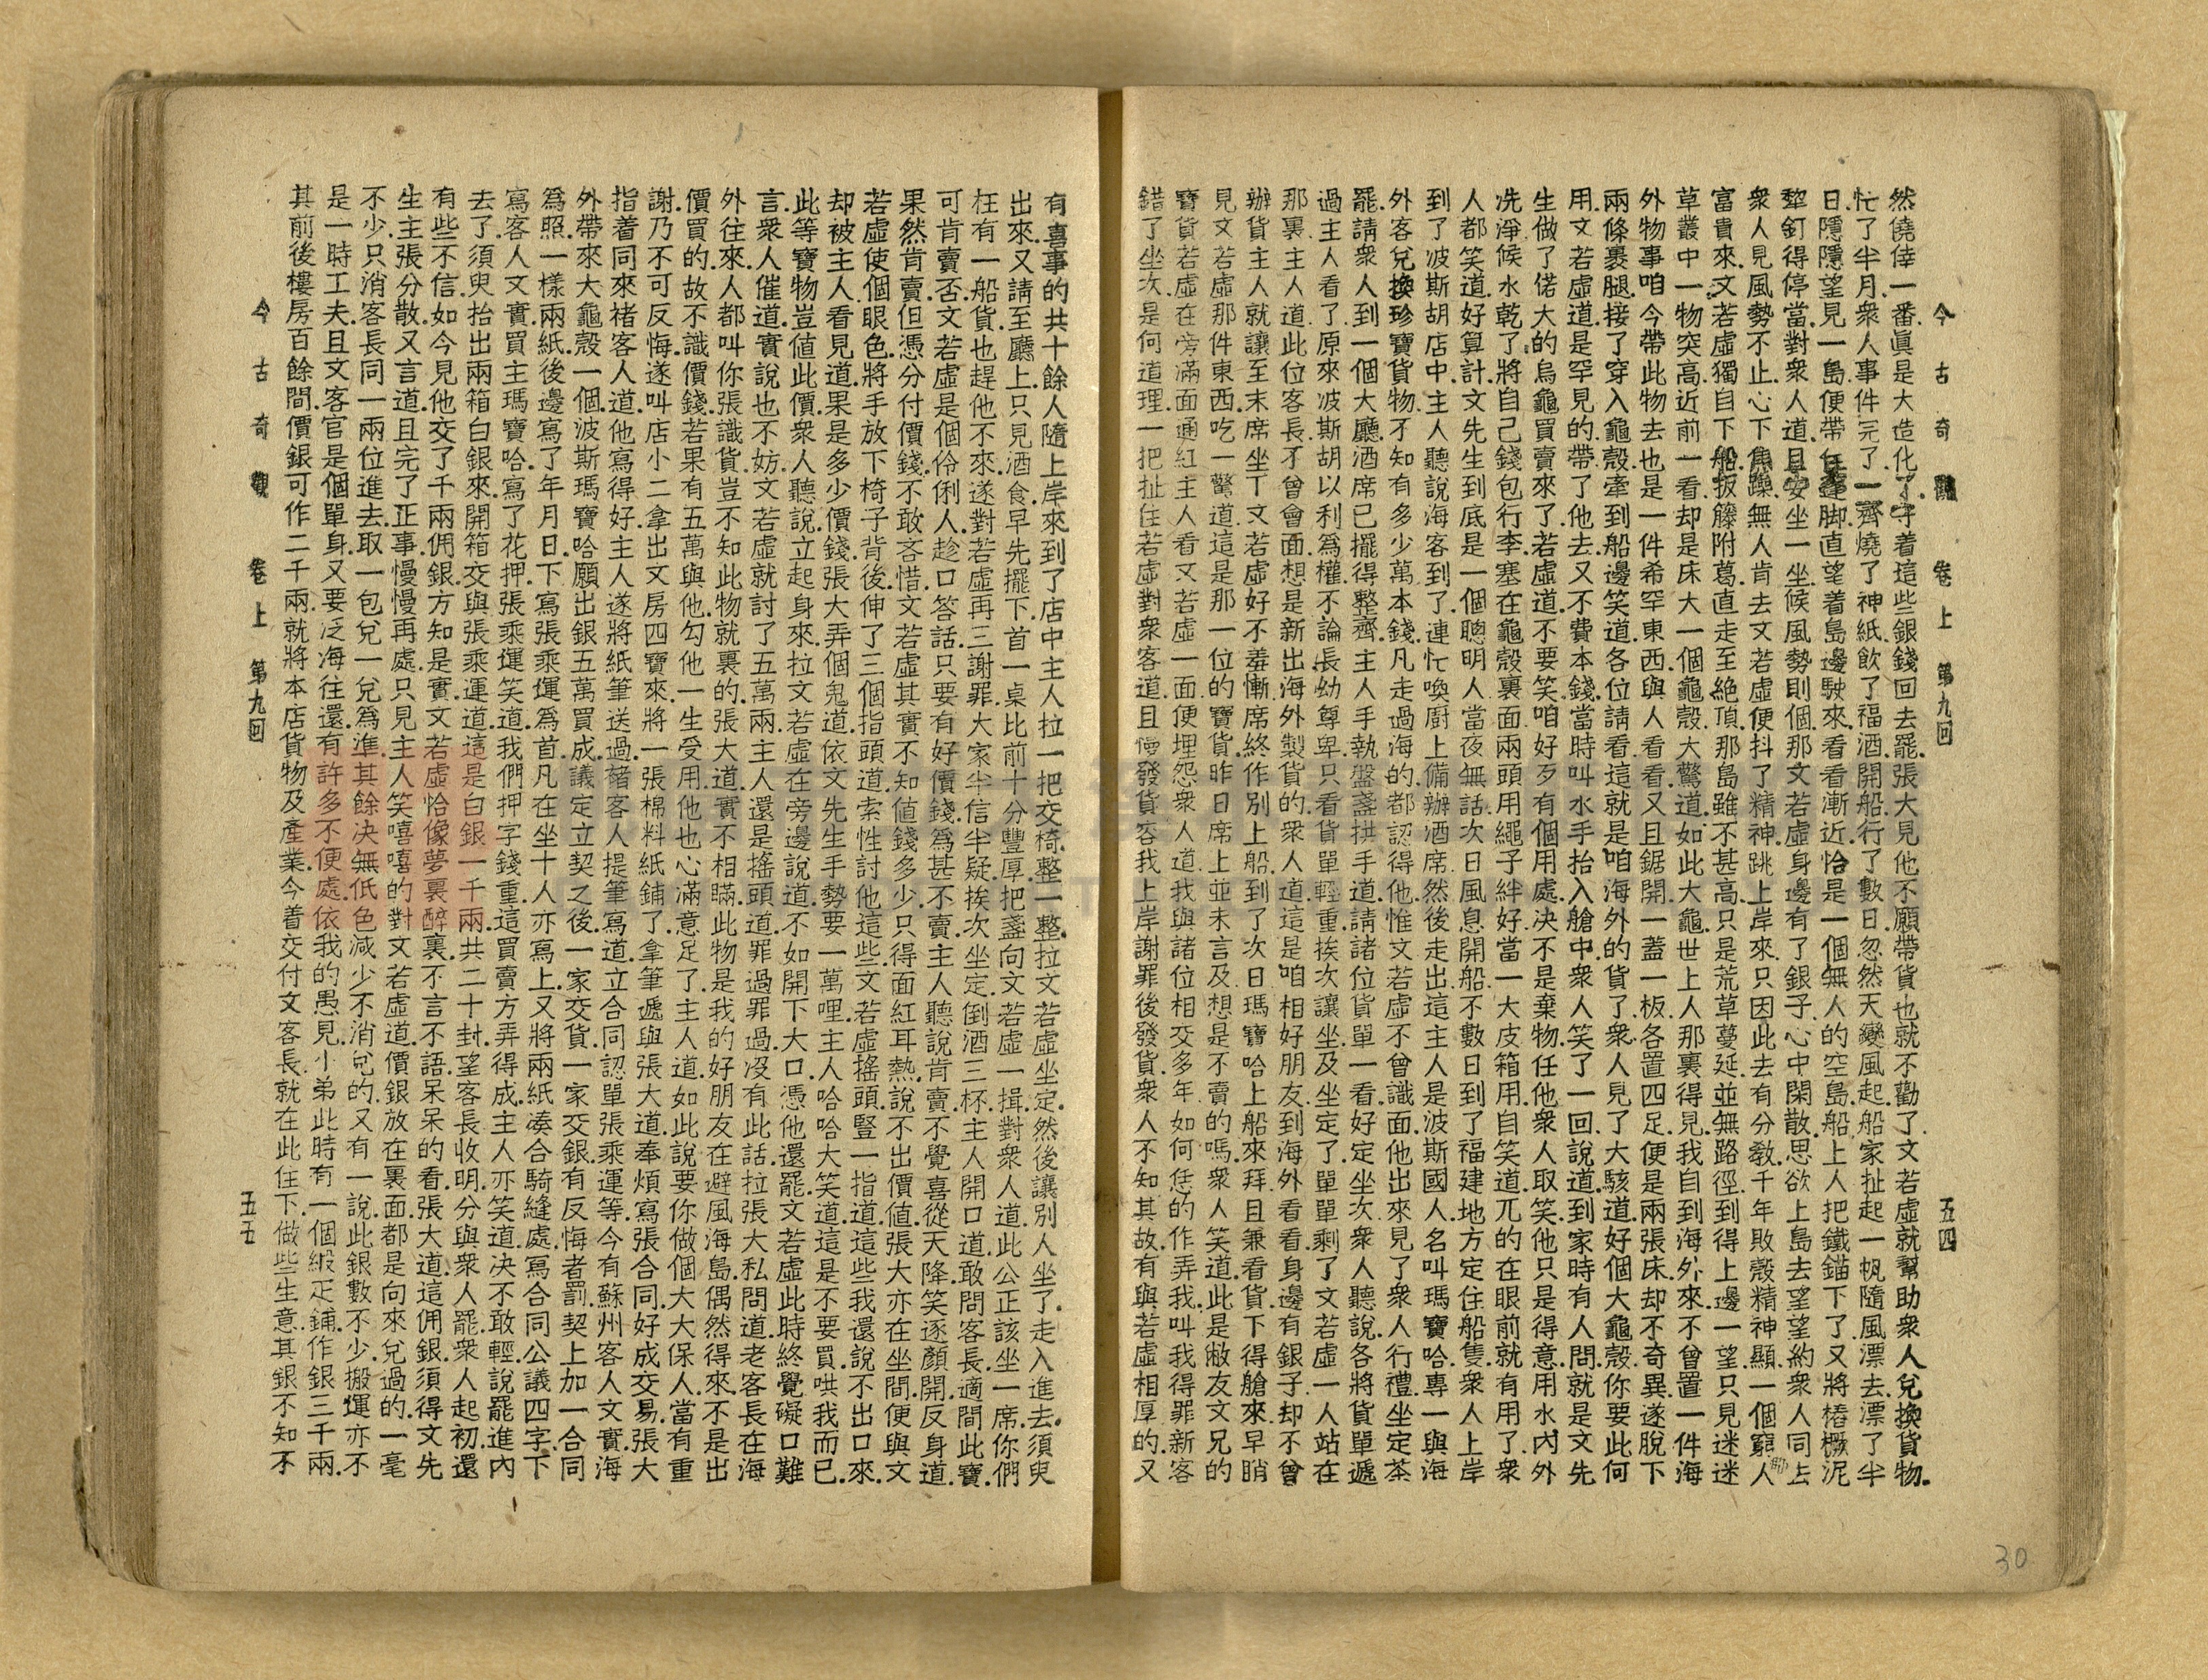 今古奇觀 卷上 第九回 五四
然僥倖一番.眞是大造化了.守着這些銀錢回去罷.張大見他不願帶貨也就不勸了.文若虛就幫助衆人兌換貨物.
忙了半月.衆人事件完了.一齊燒了神紙飮了福酒.開船.行了數日.忽然天變風起.船家扯起一帆隨風漂去.漂了半
日.隱隱望見一島.便帶住篷脚直望着島邊駛來.看看漸近.恰是一個無人的空島.船上人把鐵錨下了.又將樁橛泥
犂釘得停當.對衆人道.且安坐一坐.候風勢則個.那文若虛身邊有了銀子.心中閑散.思欲上島去望望.約衆人同上.
衆人見風勢不止.心下焦躁.無人肯去.文若虛便抖了精神跳上岸來.只因此去有分敎千年敗殼精神顯.一個窮人
富貴來.文若虛獨自下船.扳籐附葛.直走至絶頂.那島雖不甚高.只是荒草蔓延.並無路徑.到得上邊一望.只見迷迷
草叢中一物突高.近前一看.却是床大一個龜殼.大驚道.如此大龜世上人那裏得見.我自到海外來.不曾置一件海
外物事.咱今帶此物去也.是一件希罕東西.與人看看.又且鋸開一蓋一板.各置四足.便是兩張床.却不奇異.遂脫下
兩條裹腿.接了.穿入龜殼.牽到船邊.笑道.各位請看.這就是咱海外的貨了.衆人見了大駭道.好個大龜殼.你要此何
用.文若虛道.是罕見的.帶了他去.又不費本錢.當時叫水手抬入艙中.衆人笑了一回.說道.到家時有人問.就是文先
生做了偌大的烏龜買賣來了.若虛道.不要笑.咱好歹有個用處.决不是棄物.任他衆人取笑.他只是得意.用水內外
洗淨.候水乾了.將自己錢包行李.塞在龜殼裏面.兩頭用繩子絆好.當一大皮箱用.自笑道.兀的在眼前.就有用了.衆
人都笑道.好算計.文先生到底是一個聰明人.當夜無話.次日風息開船.不數日到了福建地方.定住船隻.衆人上岸.
到了波斯胡店中.主人聽說海客到了.連忙喚廚上備辦酒席.然後走出.這主人是波斯國人.名叫瑪寶哈.專一與海
外客兌換珍寶貨物.不知有多少萬本錢.凡走過海的.都認得他.惟文若虛不曾識面.他出來見了衆人.行禮.坐定.茶
罷.請衆人到一個大廳.酒席已擺得整齊.主人手執盤盞.拱手道.請諸位貨單一看.好定坐次.衆人聽說.各將貨單遞
過.主人看了.原來波斯胡以利爲權.不論長幼尊卑.只看貨單輕重.挨次讓坐.及坐定了.單單剩了文若虛一人站在
那裏.主人道.此位客長不曾會面.想是新出海外製貨的.衆人道.這是咱相好朋友.到海外看看.身邊有銀子.却不曾
辦貨.主人就讓至末席坐下.文若虛好不羞慚.席終作別上船.到了次日.瑪寶哈上船來拜.且兼看貨.下得艙來.早睄
見文若虛那件東西.吃一驚道.這是那一位的寶貨.昨日席上並未言及.想是不賣的嗎.衆人笑道.此是敝友文兄的
寶貨.若虛在旁滿面通紅.主人看文若虛一面.便埋怨衆人道.我與諸位相交多年.如何恁的作弄我.叫我得罪新客.
錯了坐次.是何道理.一把扯住若虛.對衆客道.且慢發貨.容我上岸謝罪後發貨.衆人不知其故.有與若虛相厚的.又
30
有喜事的.共十餘人.隨上岸來.到了店中.主人拉一把交椅.整一整.拉文若虛坐定.然後讓別人坐了.走入進去.須臾
出來.又請至廳上.只見酒食早先擺下.首一桌比前十分豐厚.把盞向文若虛一揖.對衆人道.此公正該坐一席.你們
枉有一船貨.也趕他不來.遂對若虛再三謝罪.大家半信半疑.挨次坐定.倒酒三杯.主人開口道.敢問客長.適間此寶.
可肯賣否.文若虛是個伶俐人.趁口答話.只要有好價錢.爲甚不賣.主人聽說肯賣.不覺喜從天降.笑逐顏開.反身道.
果然肯賣.但憑分付價錢.不敢吝惜.文若虛其實不知値錢多少.只得面紅耳熱.說不出價値.張大亦在坐問.便與文
若虛使個眼色.將手放下椅子背後.伸了三個指頭.道.索性討他這些.文若虛搖頭.豎一指道.這些我還說不出口來.
却被主人看見.道.果是多少價錢.張大弄個鬼道.依文先生手勢.要一萬哩.主人哈哈大笑道.這是不要買.哄我而已.
此等寶物.豈値此價.衆人聽說.立起身來.拉文若虛在旁邊說道.不如開下大口.憑他還罷.文若虛此時終覺礙口難
言.衆人催道.實說也不妨.文若虛就討了五萬兩.主人還是搖頭.道.罪過罪過.沒有此話.拉張大私問道.老客長在海
外往來.人都叫你張識貨.豈不知此物就裏的.張大道.實不相瞞.此物是我的好朋友在避風海島.偶然得來.不是出
價買的.故不識價錢.若果有五萬與他.勾他一生受用.他也心滿意足了.主人道.如此說.要你做個大大保人.當有重
謝.乃不可反悔.遂叫店小二拿出文房四寶來.將一張棉料紙鋪了.拿筆遞與張大道.奉煩寫張合同.好成交易.張大
指着同來褚客人道.他寫得好.主人遂將紙筆送過.褚客人提筆寫道.立合同認單張乘運等.今有蘇州客人文實.海
外帶來大龜殼一個.波斯瑪寶哈願出銀五萬買成.議定立契之後.一家交貨.一家交銀.有反悔者.罰契上加一.合同
爲照.一樣兩紙.後邊寫了年月日.下寫張乘運爲首.凡在坐十人亦寫上.又將兩紙凑合騎縫處.寫合同公議四字.下
寫客人文實買主瑪寶哈.寫了花押.張乘運笑道.我們押字錢重.這買賣方弄得成.主人亦笑道.决不敢輕說.罷.進內
去了.須臾抬出兩箱白銀來.開箱交與張乘運道.這是白銀一千兩.共二十封.望客長收明.分與衆人罷.衆人起初還
有些不信.如今見他交了千兩佣銀.方知是實.文若虛恰像夢裏醉裏.不言不語.呆呆的看.張大道.這佣銀須得文先
生主張分散.又言道.且完了正事.慢慢再處.只見主人笑嘻嘻的對文若虛道.價銀放在裏面.都是向來兌過的.一毫
不少.只消客長同一兩位進去.取一包兌一兌爲準.其餘决無低色减少.不消兌的.又有一說.此銀數不少.搬運亦不
是一時工夫.且文客官是個單身.又要泛海往還.有許多不便處.依我的愚見.小弟此時有一個緞疋鋪.作銀三千兩.
其前後樓房百餘間.價銀可作二千兩.就將本店貨物及產業.今着交付文客長.就在此住下.做些生意.其銀不知不
今古奇觀 卷上 第九回 五五